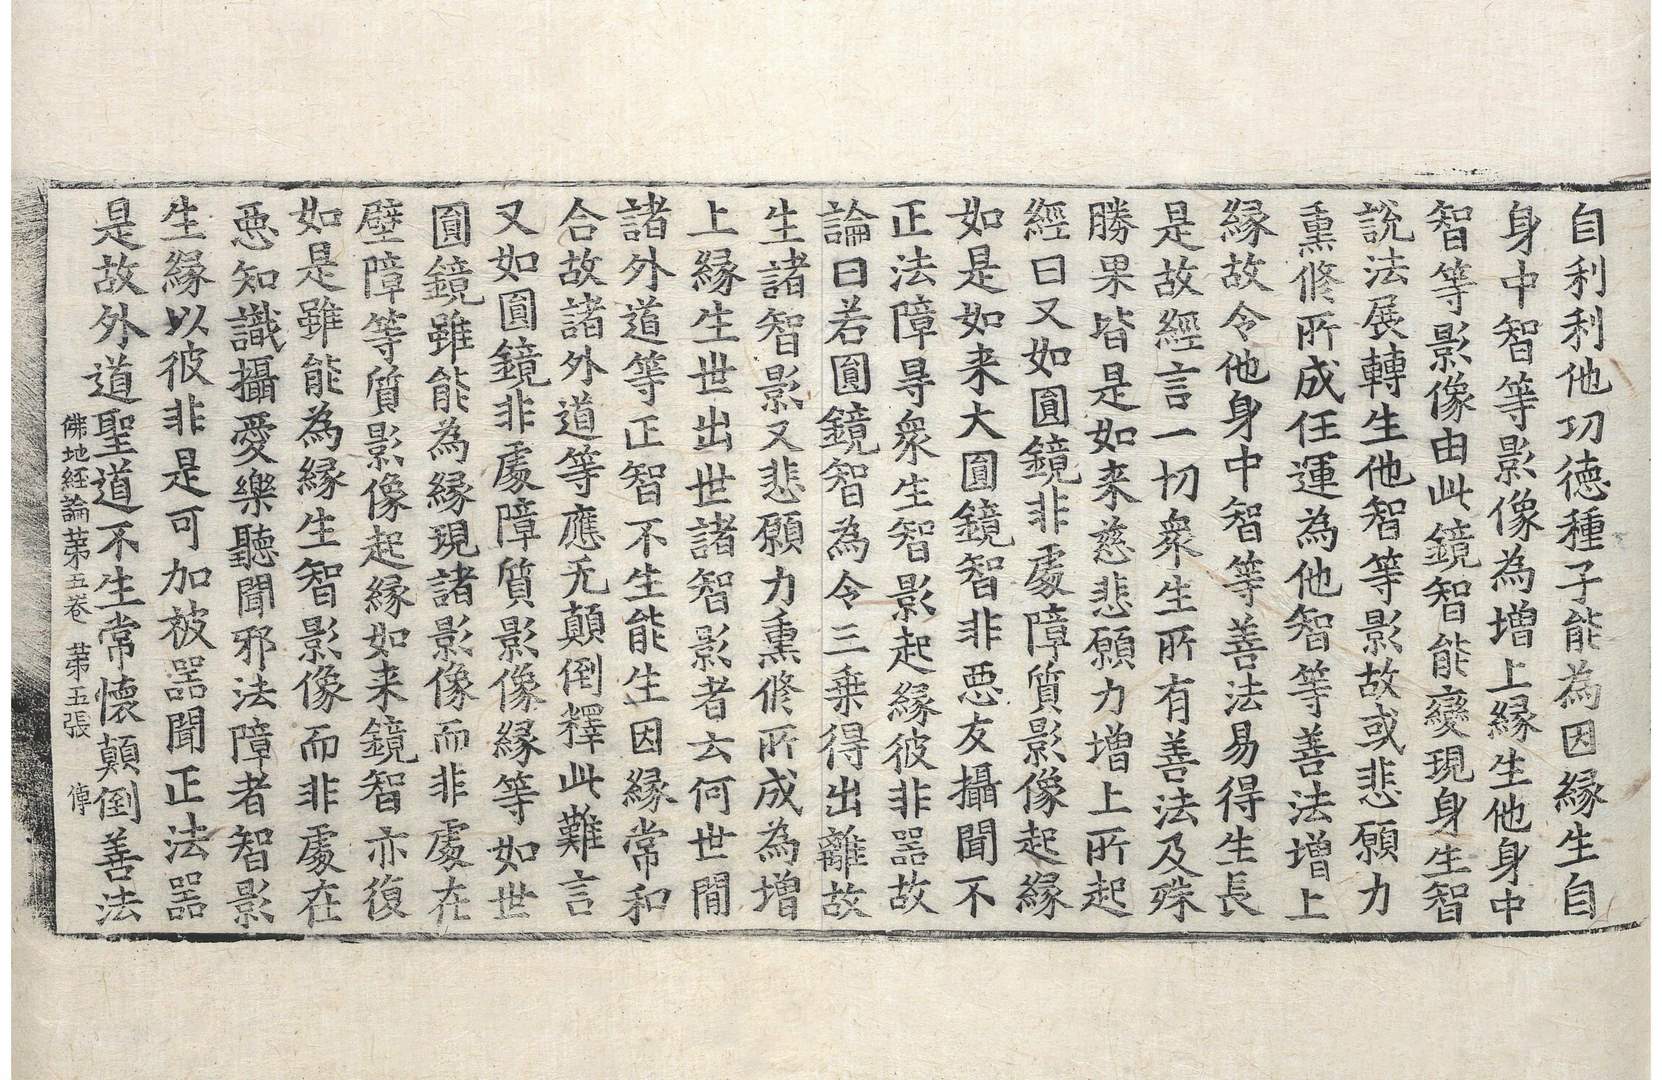 自利利他功德種子能為因緣生自
身中智等影像為增上緣生他身中
智等影像由此鏡智能變現身生智
說法展轉生他智等影故或悲願力
熏修所成任運為他智等善法增上
緣故令他身中智等善法易得生長
是故經言一切衆生所有善法及殊
勝果皆是如来慈悲願力增上所起
經曰又如圓鏡非處障質影像起緣
如是如来大圓鏡智非惡友攝聞不
正法障㝵衆生智影起緣彼非器故
論曰若圓鏡智為令三乗得出離故
生諸智影又悲願力熏修所成為增
上緣生世出世諸智影者云何世間
諸外道等正智不生能生因緣常和
合故諸外道等應无顛倒釋此難言
又如圓鏡非處障質影像緣等如世
圓鏡雖能為緣現諸影像而非處在
壁障等質影像起緣如来鏡智亦復
如是雖能為緣生智影像而非處在
惡知識攝愛樂聽聞邪法障者智影
生緣以彼非是可加被器聞正法器
是故外道聖道不生常懷顛倒善法
佛地經論苐五卷 苐五張 俥